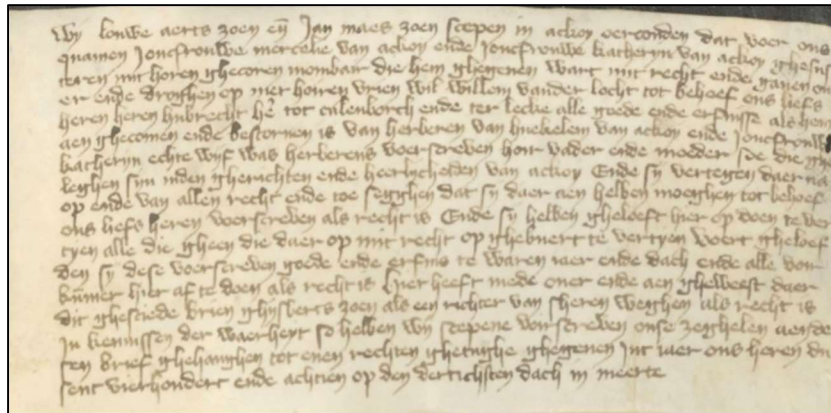 Wij louwe aerts zoen en Jan maes zoen scepen in ackoy oerconden dat voer ons
quamen Joncfrouwe mercelie van ackoy ende Joncfrouwe katherijn van ackoy ghesus
teren mit horen ghecoren mombair die hem ghegeven wart mit recht ende gaven ou
er ende droghen op mer horen vrien wil willem vander locht tot behoef ons liefs
heren heren hubrecht he tot culenborch ende ter lecke alle goede ende erfnisse als hem
aen ghecomen ende bestorven is van herberen van huekelem van ackoy ende Joncfrouwe
katherijn echte wijf was herberens voerscreven hoir vader ende moeder soe die ghe
leghen sijn inden gherichten ende heerlicheiden van ackoy Ende sij vertegen daer na
op ende van allen recht ende toe segghen dat sij daer aen hebben moeghen tot behoef
ons liefs heren voerscreven als recht is Ende sij hebben gheloeft hier op doen te ver
tyen alle die gheen die daer op mit recht op ghebuert te vertyen Voert gheloef
den sij dese voerscreven goede ende erfnis te waren iaer ende dach ende alle voir
kummer hier af te doen als recht is hier heeft mede over ende aen gheweest daer
dit ghesciede brien ghijsberts zoen als een richter van sheren weghen als recht is
In kennissen der waerheyt so hebben wij scepene vorscreven onse zeghelen aen de
sen brief ghehanghen tot enen rechten ghetughe ghegeven Int iaer ons heren du
sent vierhondert ende achtien op den dertichsten dach in meerte